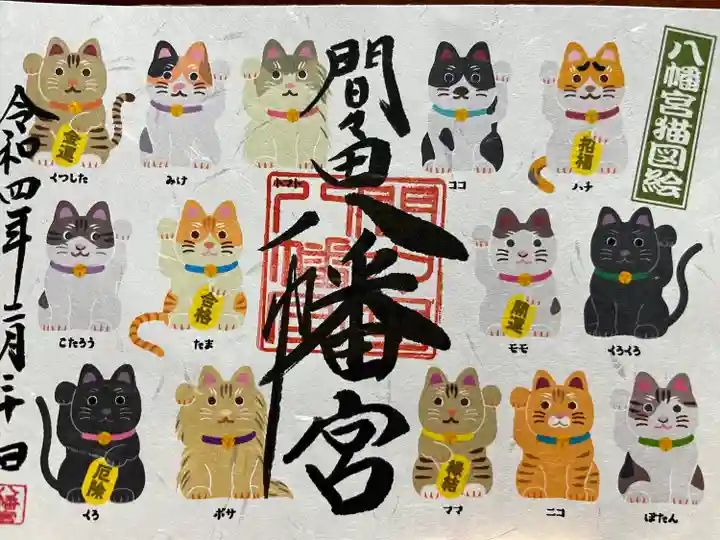 八幡宮猫図絵
間々田八幡宮
令和四年
月
日
金運
くつした
みけ
トマト
ココ
招福
ハナ
こたろう
合格
たま
開運
モモ
くろくろ
厄除
くろ
ボサ
縁結
ママ
ニコ
ぼたん
八幡宮